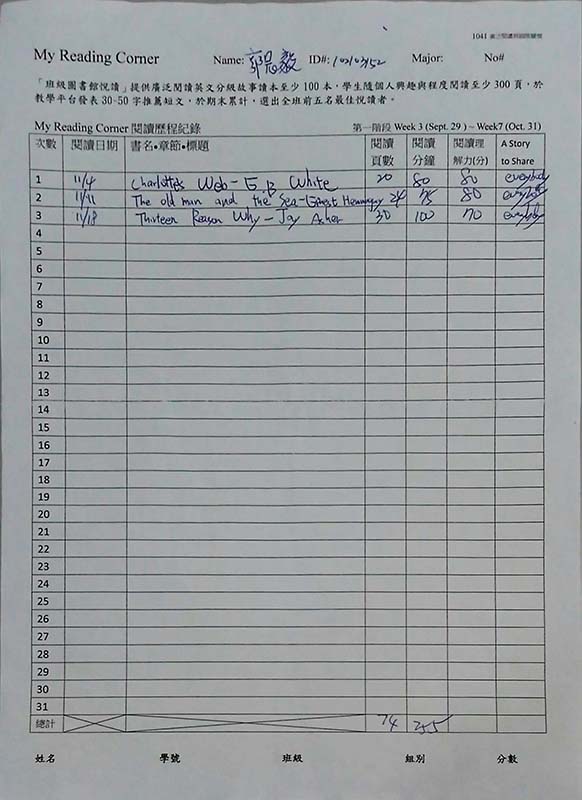 1041
My Reading Corner Name: 郭晁毅 ID#: 10103152 Major: No#
「班級圖書館悅讀」提供廣泛閱讀英文分級故事讀本至少 100 本，學生隨個人興趣與程度閱讀至少 300 頁，於
教學平台發表 30-50 字推薦短文，於期末累計，選出全班前五名最佳悅讀者。
My Reading Corner 閱讀歷程紀錄 第一階段 Week 3 (Sept. 29 ) ~ Week7 (Oct. 31)
次數 閱讀日期 書名•章節•標題 閱讀頁數 閱讀分鐘 閱讀理解力(分) A Story to Share
1 11/4 Charlotte's Web - E.B White 20 80 80 everybody
2 11/11 The old man and the Sea - Ernest Hemingway 24 75 80 everybody
3 11/18 Thirteen Reason Why - Jay Asher 30 100 70 everybody
4
5
6
7
8
9
10
11
12
13
14
15
16
17
18
19
20
21
22
23
24
25
26
27
28
29
30
31
總計 74 255
姓名 學號 班級 組別 分數